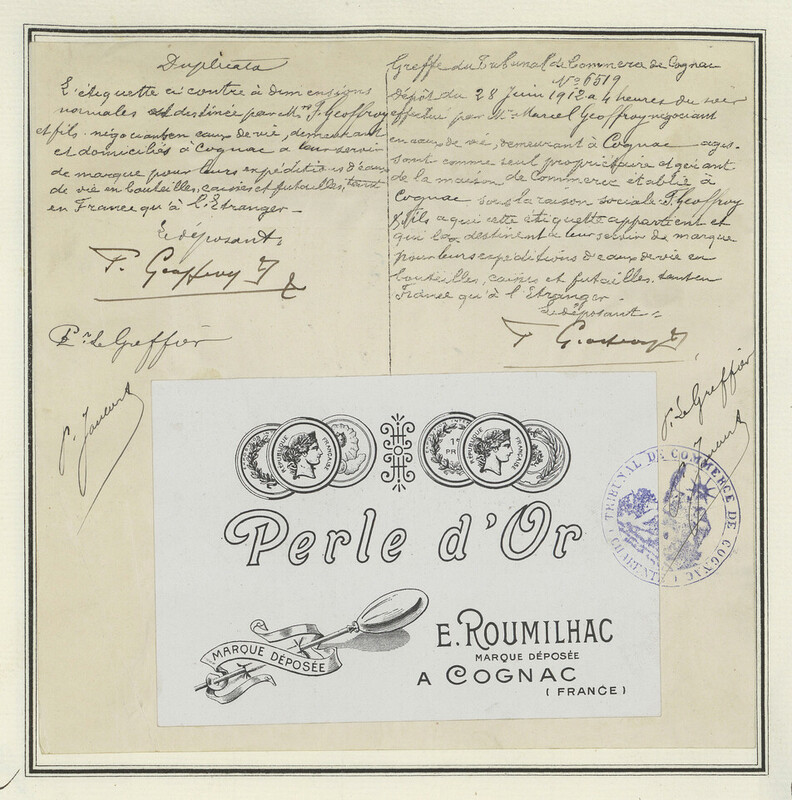 Duplicata
L'étiquette ci contre à dimensions
normales est destinée par Mrs F. Geoffroy
et fils négociants en eaux de vie, demeurant
et domiciliés à Cognac a leur servir
de marque pour leurs expéditions d'eaux
de vie en bouteilles, caisses et futailles, tant
en France qu'à l'Etranger.
Le déposant:
F. Geoffroy
Pr. Le Greffier
Greffe du Tribunal de Commerce de Cognac
No 6519
Dépôt du 28 Juin 1912 a 4 heures du soir
effectué par Mr Marcel Geoffroy négociant
en eaux de vie, demeurant à Cognac agis-
sant comme seul propriétaire et gérant
de la maison de Commerce établie à
Cognac sous la raison sociale F. Geoffroy
& fils a qui cette étiquette appartient et
qui la destinent a leur servir de marque
pour leurs expéditions d'eaux de vie en
bouteilles, caisses et futailles tant en
France qu'à l'Etranger.
Le déposant:
F. Geoffroy
P. Le Greffier
RÉPUBLIQUE FRANÇAISE
1ER PR
RÉPUBLIQUE FRANÇAISE
Perle d'Or
MARQUE DÉPOSÉE
E. ROUMILHAC
MARQUE DÉPOSÉE
A COGNAC
(FRANCE)
TRIBUNAL DE COMMERCE DE COGNAC
CHARENTE